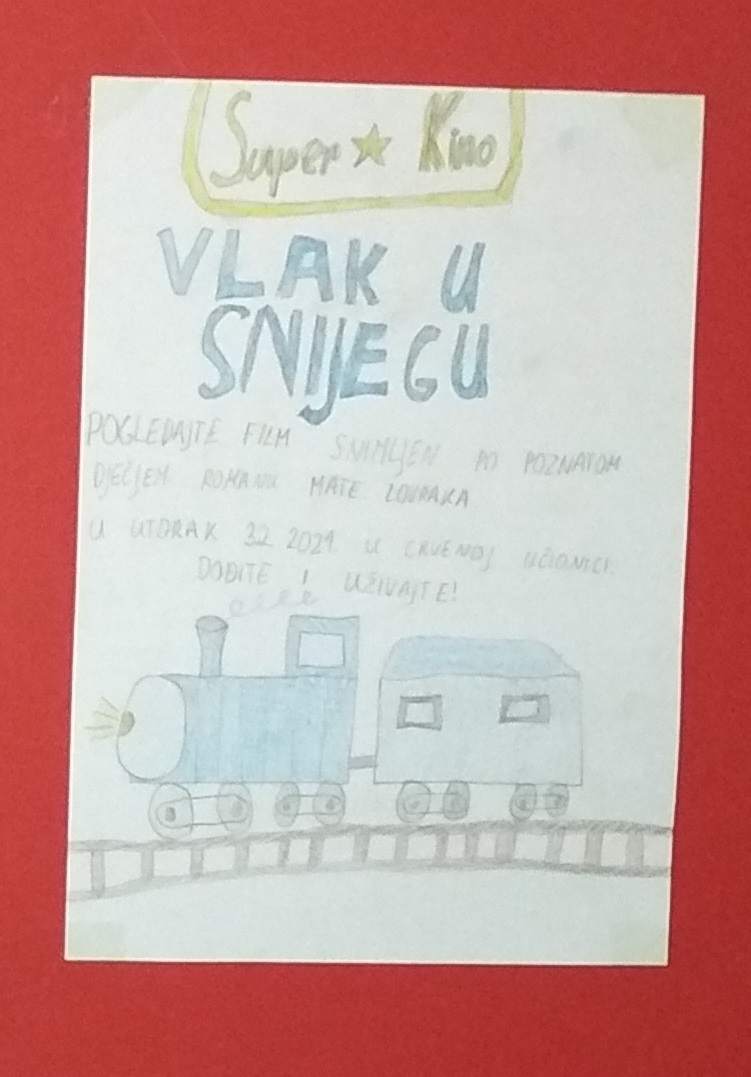 Super Kino
VLAK U
SNIJEGU
POGLEDAJTE FILM SNIMLJEN PO POZNATOM
DJEČJEM ROMANU MATE LOVRAKA
U UTORAK 32 2021. U CRVENOJ UČIONICI.
DOĐITE I UŽIVAJTE!